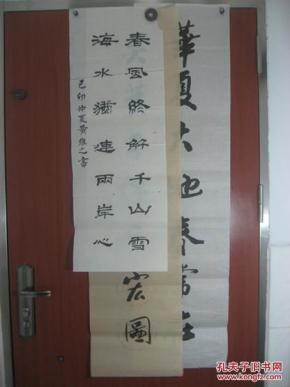 春風終解千山雪
海水猶連兩岸心
己卯仲夏黃維之書
宏圖
華夏大地春常在
孔夫子旧书网